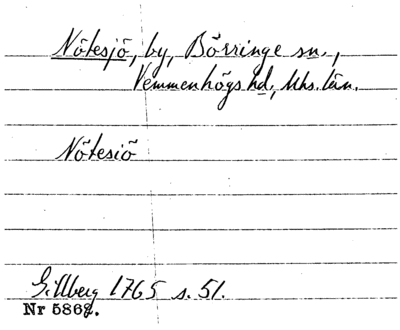 Nötesjö, by, Börringe sn.,
Vemmenhögs hd, Mhs. län.
Nötesiö
Gillberg 1765 s. 51.
Nr 5868.